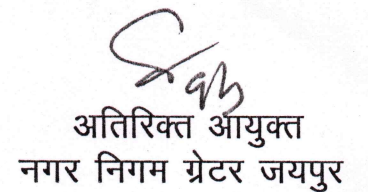 अतिरिक्त आयुक्त
नगर निगम ग्रेटर जयपुर